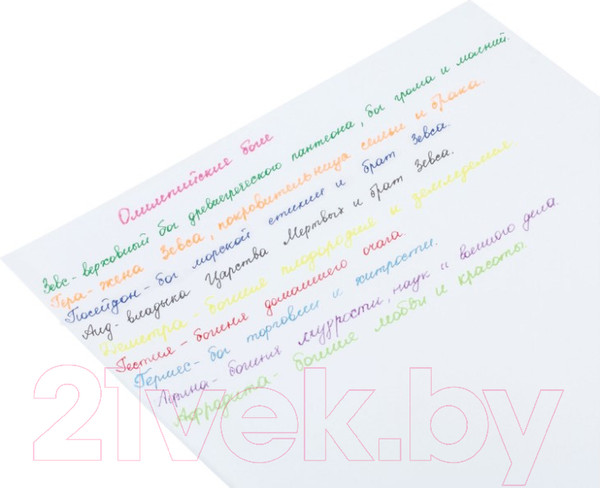 Олимпийские боги
Зевс - верховный бог древнегреческого пантеона, бог грома и молний.
Гера - жена Зевса, покровительница семьи и брака.
Посейдон - бог морской стихии и брат Зевса.
Аид - владыка Царства Мертвых и брат Зевса.
Деметра - богиня плодородия и земледелия
Гестия - богиня домашнего очага.
Гермес - бог торговли и хитрости.
Афина - богиня мудрости, наук и военного дела.
Афродита - богиня любви и красоты.
21vek.by